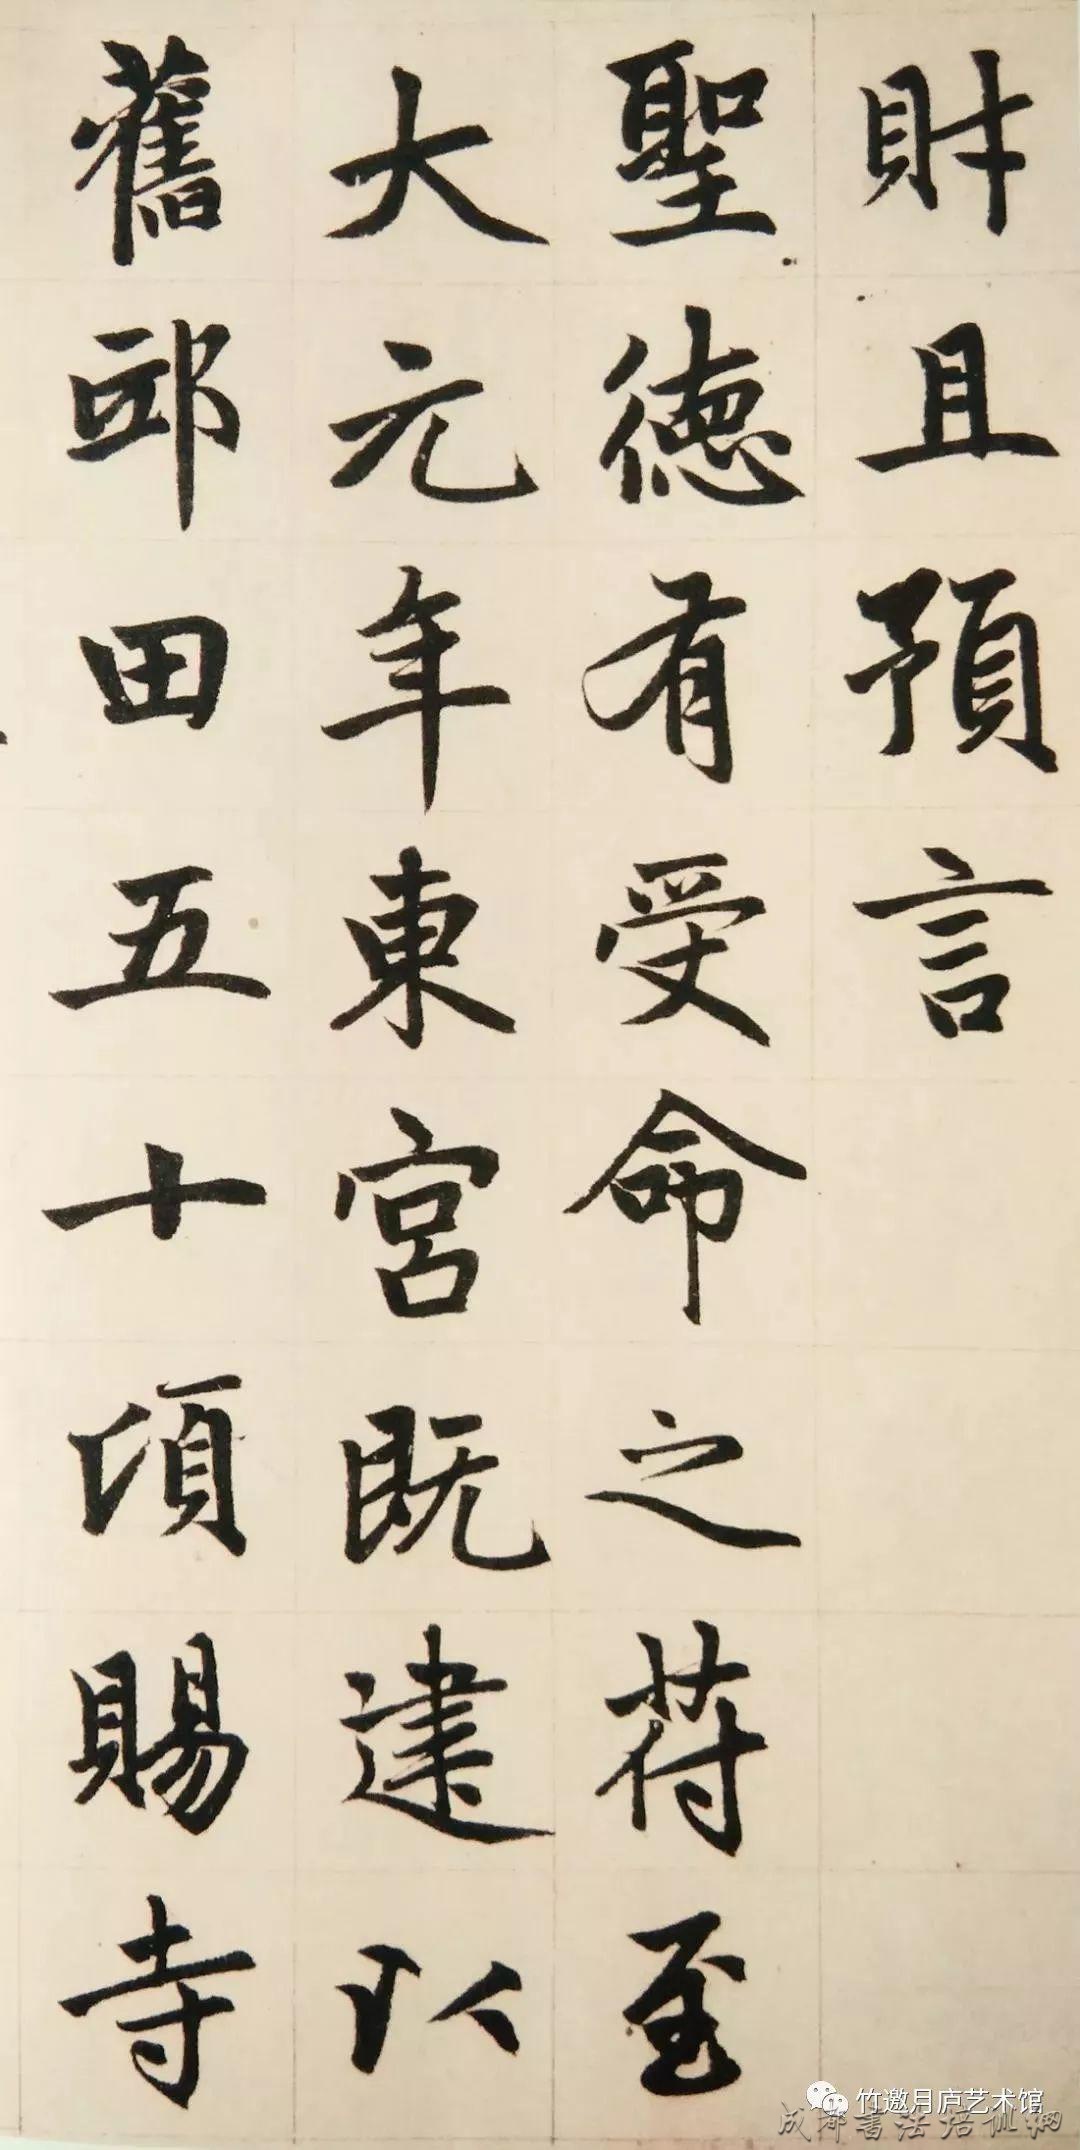 財且預言
聖德有受命之符至
大元年東宮既建以
舊邸田五十頃賜寺
竹邀月庐艺术馆
成都书法培训网